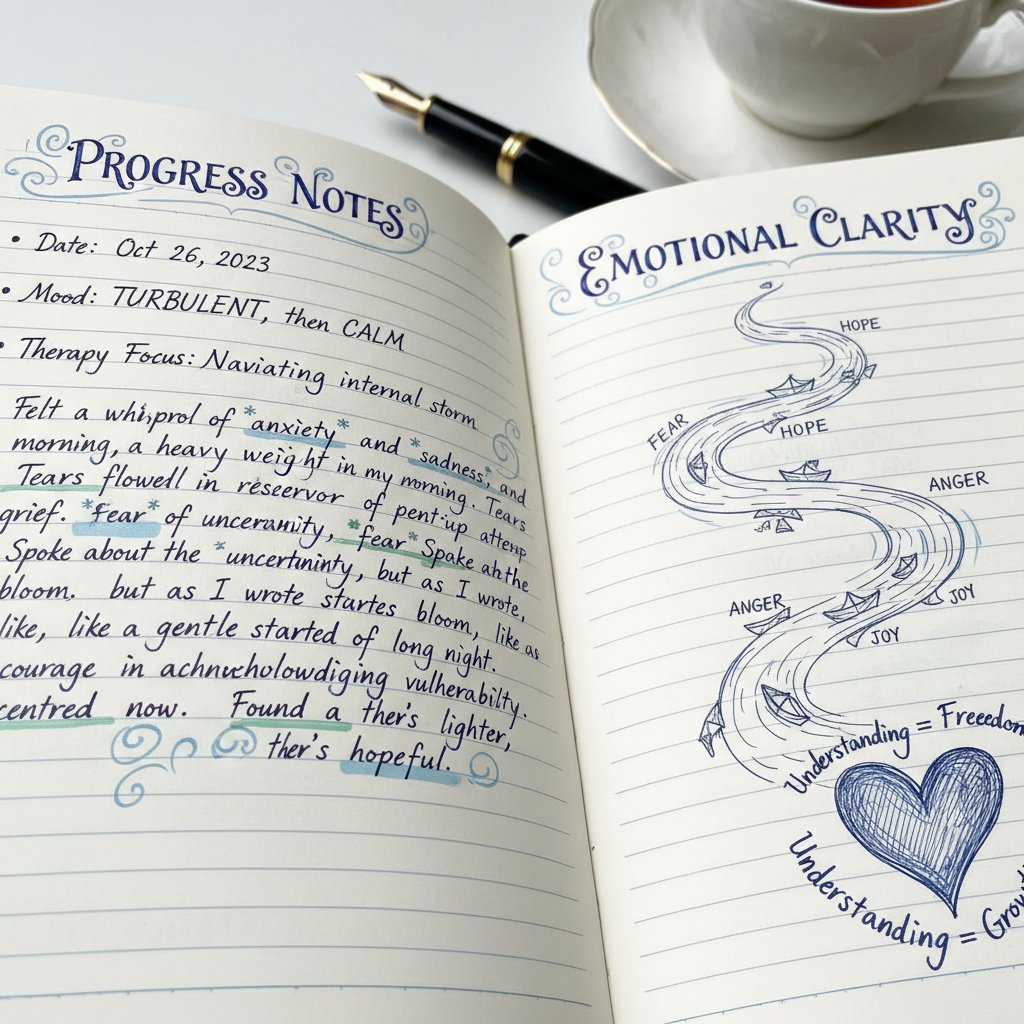 PROGRESS NOTES
• Date: Oct 26, 2023
• Mood: TURBULENT, then CALM
• Therapy Focus: Naviating internal storm
Felt a of *anxiety* and *sadness, and
morning, a heavy weight in my morning. Tears
Tears flowedl in reservor of pent-up
grief. *Fear* of *fear* Spake
Spoke about the *uncertninty, but as I wrote,
bloom. but as I wrote startes bloom, like as
like, like a gentle started of long night.
courage in vulherabilty.
centred now. Found a ther's lighter,
ther's hopeful.
EMOTIONAL CLARITY
HOPE
FEAR
HOPE
ANGER
ANGER
JOY
JOY
Understanding = Freeedom
Understanding =